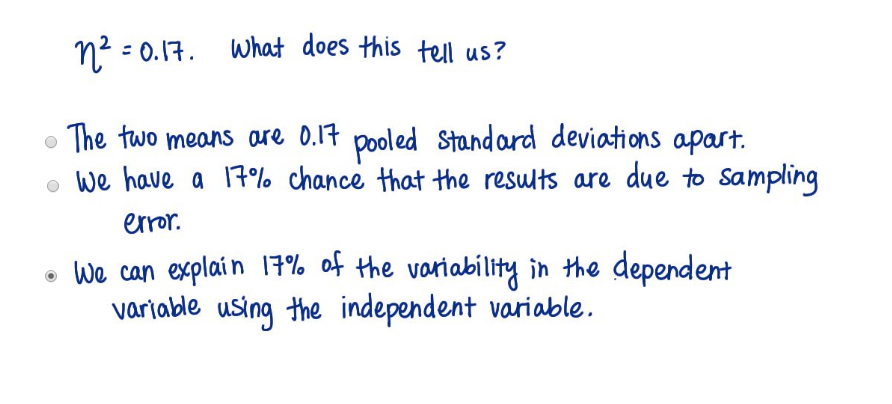 η² = 0.17. What does this tell us?
The two means are 0.17 pooled standard deviations apart.
We have a 17% chance that the results are due to sampling
error.
We can explain 17% of the variability in the dependent
variable using the independent variable.